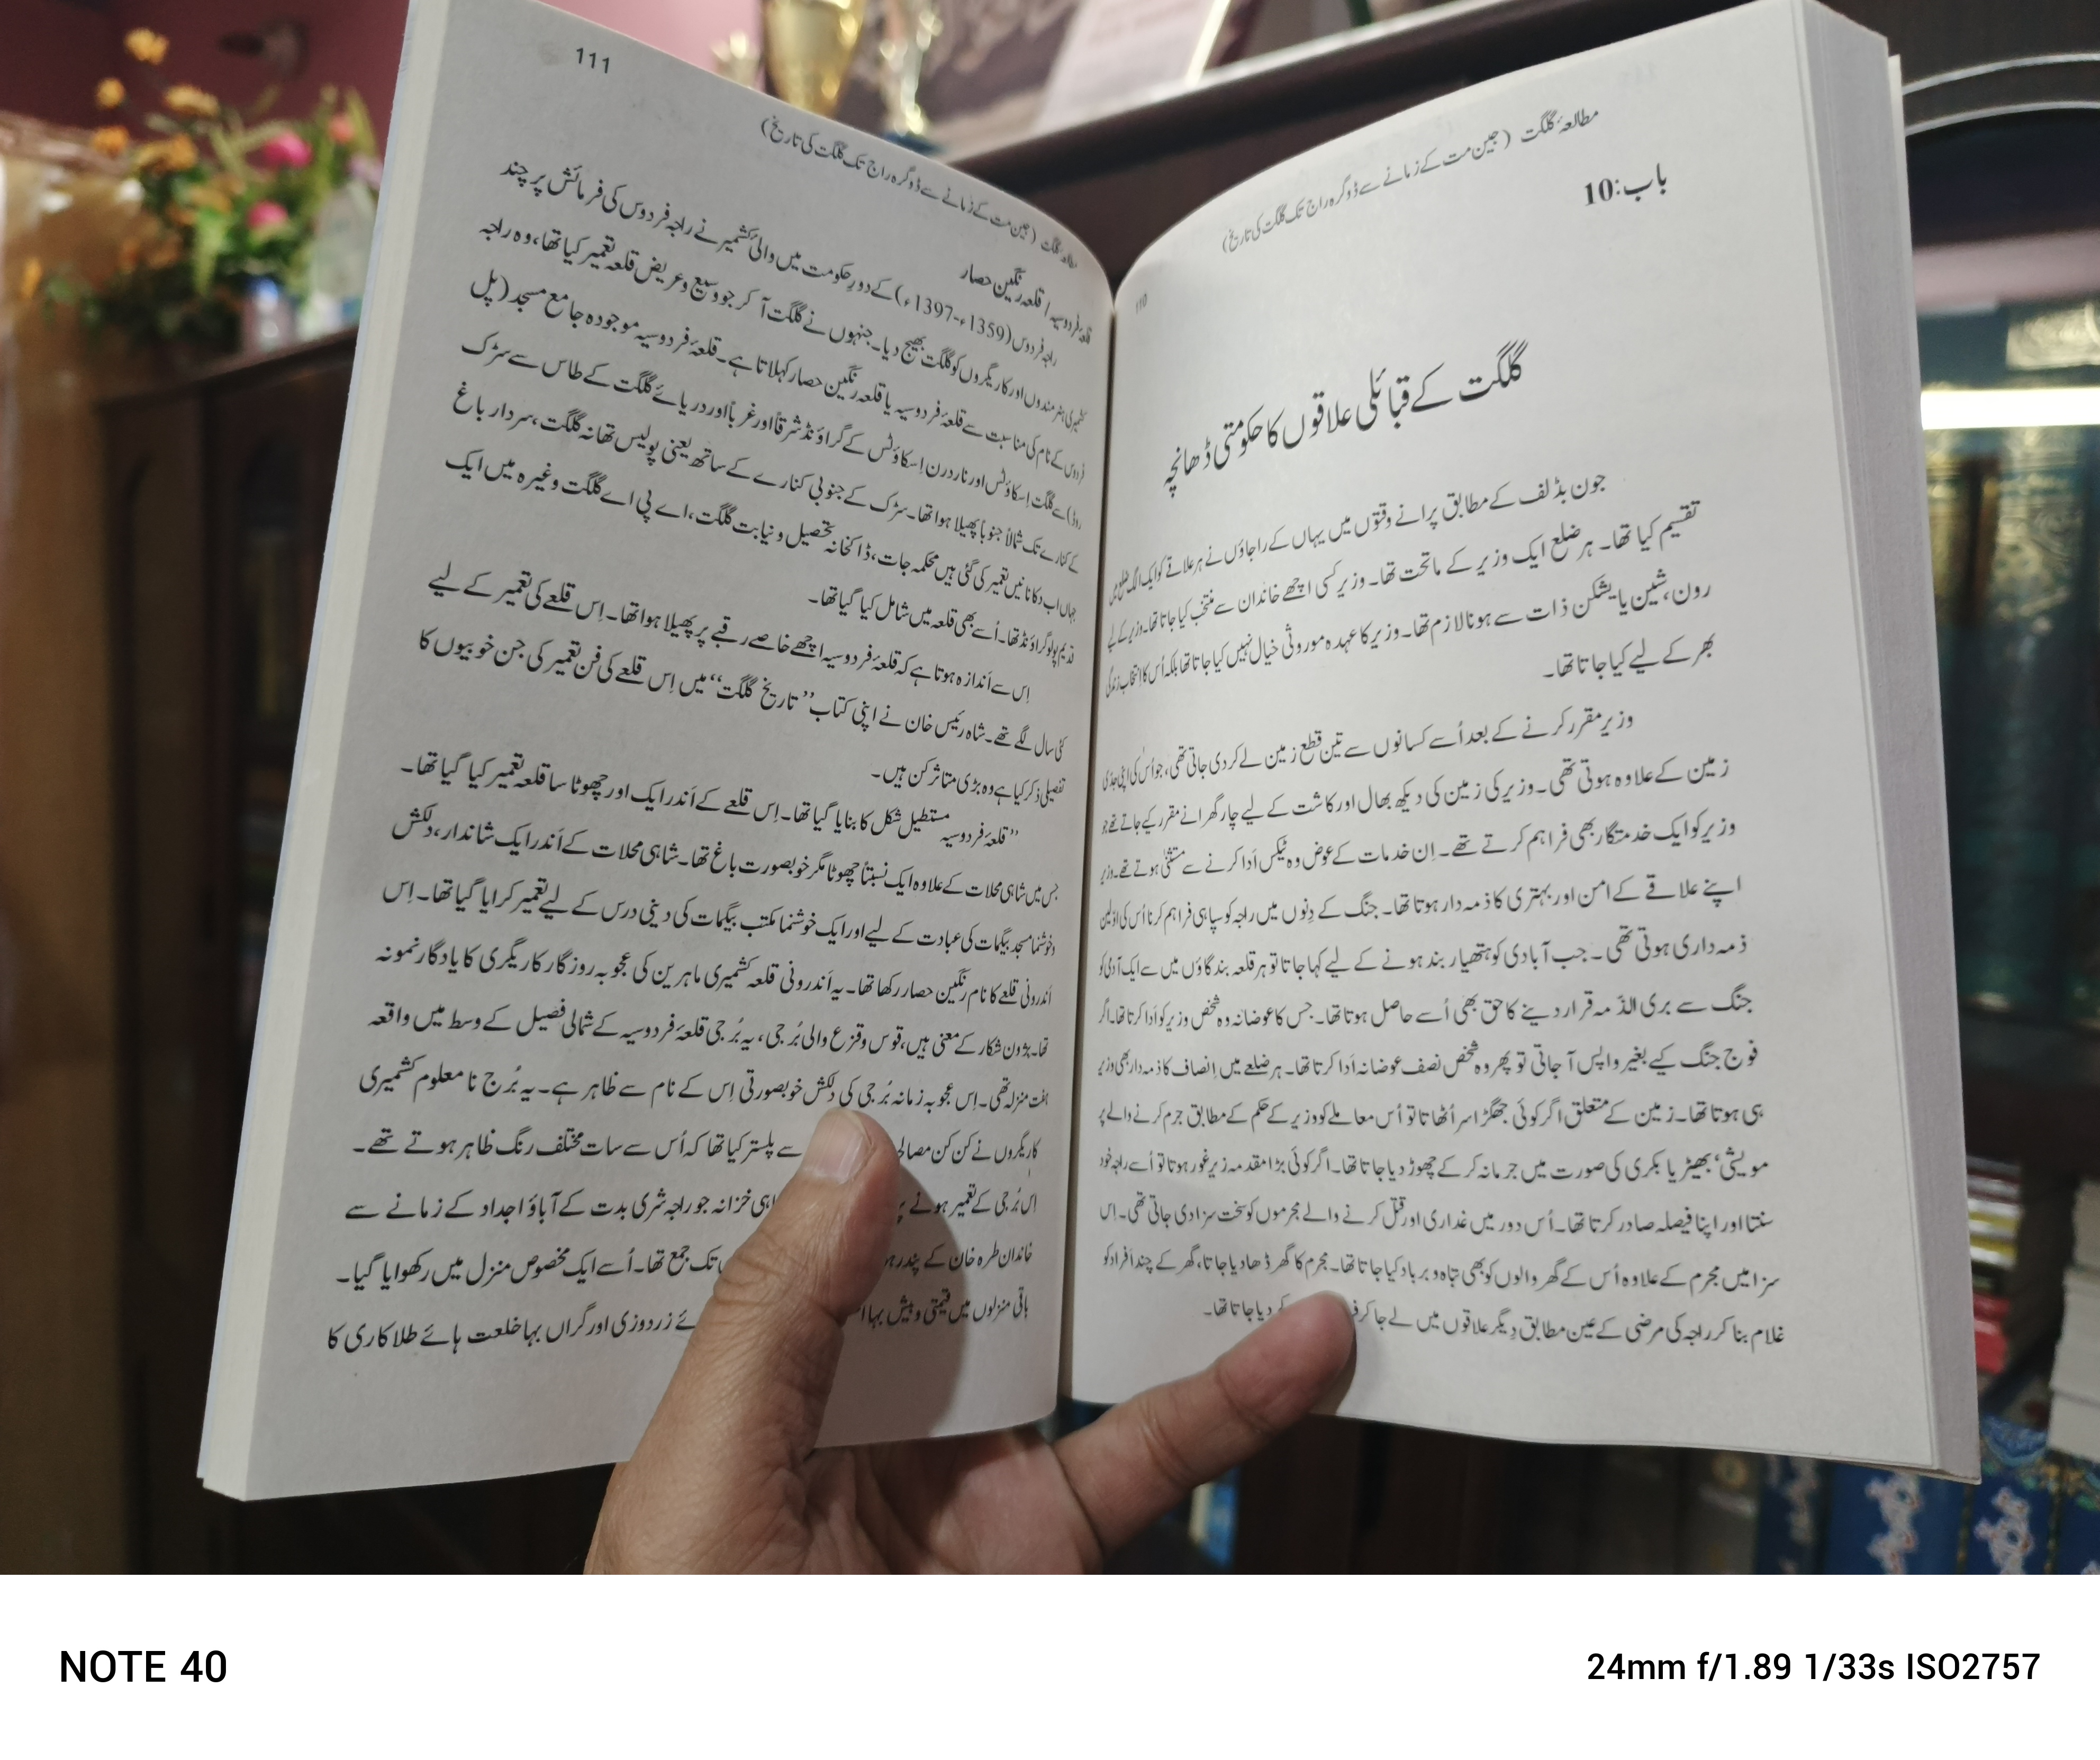 مطالعۂ گلگت (جین مت کے زمانے سے ڈوگرہ راج تک گلگت کی تاریخ)
110
باب:10
گلگت کے قبائلی علاقوں کا حکومتی ڈھانچہ
جون بڈلف کے مطابق پرانے وقتوں میں یہاں کے راجاؤں نے ہر علاقے کو ایک الگ ضلع میں
تقسیم کیا تھا۔ ہر ضلع ایک وزیر کے ماتحت تھا۔ وزیر کسی اچھے خاندان سے منتخب کیا جاتا تھا۔ وزیر کے لیے
رون، شین یا یشکن ذات سے ہونا لازم تھا۔ وزیر کا عہدہ موروثی خیال نہیں کیا جاتا تھا بلکہ اُس کا انتخاب زندگی
بھر کے لیے کیا جاتا تھا۔
وزیر مقرر کرنے کے بعد اُسے کسانوں سے تین قطع زمین لے کر دی جاتی تھی، جو اُس کی اپنی جدّی
زمین کے علاوہ ہوتی تھی۔ وزیر کی زمین کی دیکھ بھال اور کاشت کے لیے چار گھرانے مقرر کیے جاتے تھے جو
وزیر کو ایک خدمتگار بھی فراہم کرتے تھے۔ اِن خدمات کے عوض وہ ٹیکس اَدا کرنے سے مستثنیٰ ہوتے تھے۔ وزیر
اپنے علاقے کے امن اور بہتری کا ذمہ دار ہوتا تھا۔ جنگ کے دِنوں میں راجہ کو سپاہی فراہم کرنا اُس کی اوّلین
ذمہ داری ہوتی تھی۔ جب آبادی کو ہتھیار بند ہونے کے لیے کہا جاتا تو ہر قلعہ بند گاؤں میں سے ایک آدمی کو
جنگ سے بری الذّمہ قرار دینے کا حق بھی اُسے حاصل ہوتا تھا۔ جس کا عوضانہ وہ شخص وزیر کو اَدا کرتا تھا۔ اگر
فوج جنگ کیے بغیر واپس آ جاتی تو پھر وہ شخص نصف عوضانہ اَدا کرتا تھا۔ ہر ضلعے میں اِنصاف کا ذمہ دار بھی وزیر
ہی ہوتا تھا۔ زمین کے متعلق اگر کوئی جھگڑا سر اُٹھاتا تو اُس معاملے کو وزیر کے حکم کے مطابق جرم کرنے والے پر
مویشی، بھیڑ یا بکری کی صورت میں جرمانہ کر کے چھوڑ دیا جاتا تھا۔ اگر کوئی بڑا مقدمہ زیرِ غور ہوتا تو اُسے راجہ خود
سنتا اور اپنا فیصلہ صادر کرتا تھا۔ اُس دور میں غداری اور قتل کرنے والے مجرموں کو سخت سزا دی جاتی تھی۔ اِس
سزا میں مجرم کے علاوہ اُس کے گھر والوں کو بھی تباہ و برباد کیا جاتا تھا۔ مجرم کا گھر ڈھا دیا جاتا، گھر کے چند افراد کو
غلام بنا کر راجہ کی مرضی کے عین مطابق دیگر علاقوں میں لے جا کر دیا جاتا تھا۔
111
مطالعۂ گلگت (جین مت کے زمانے سے ڈوگرہ راج تک گلگت کی تاریخ)
قلعۂ فردوسیہ / قلعہ رنگین حصار
راجہ فردوس (1359ء-1397ء) کے دورِ حکومت میں والئ کشمیر نے راجہ فردوس کی فرمائش پر چند
کشمیری ہنر مندوں اور کاریگروں کو گلگت بھیج دیا۔ جنہوں نے گلگت آ کر جو وسیع و عریض قلعہ تعمیر کیا تھا، وہ راجہ
فردوس کے نام کی مناسبت سے قلعۂ فردوسیہ یا قلعہ رنگین حصار کہلاتا ہے۔ قلعۂ فردوسیہ موجودہ جامع مسجد (پل
روڈ) سے گلگت اسکاؤٹس اور ناردرن اِسکاؤٹس کے گراؤنڈ شرقاً اور غرباً اور دریائے گلگت کے طاس سے سڑک
کے کنارے تک شمالاً جنوباً پھیلا ہوا تھا۔ سڑک کے جنوبی کنارے کے ساتھ یعنی پولیس تھانہ گلگت، سردار باغ
جہاں اب دکانیں تعمیر کی گئی ہیں محکمہ جات، ڈاکخانہ تحصیل و نیابت گلگت، اے پی اے گلگت وغیرہ میں ایک
قدیم پولو گراؤنڈ تھا۔ اُسے بھی قلعہ میں شامل کیا گیا تھا۔
اِس سے اَندازہ ہوتا ہے کہ قلعۂ فردوسیہ اچھے خاصے رقبے پر پھیلا ہوا تھا۔ اِس قلعے کی تعمیر کے لیے
کئی سال لگے تھے۔ شاہ رئیس خان نے اپنی کتاب ”تاریخِ گلگت“ میں اِس قلعے کی فنِ تعمیر کی جن خوبیوں کا
تفصیلی ذکر کیا ہے وہ بڑی متاثر کن ہیں۔
”قلعۂ فردوسیہ مستطیل شکل کا بنایا گیا تھا۔ اِس قلعے کے اَندر ایک اور چھوٹا سا قلعہ تعمیر کیا گیا تھا۔
جس میں شاہی محلات کے علاوہ ایک نسبتاً چھوٹا مگر خوبصورت باغ تھا۔ شاہی محلات کے اَندر ایک شاندار، دلکش
و خوشنما مسجد بیگمات کی عبادت کے لیے اور ایک خوشنما مکتب بیگمات کی دینی درس کے لیے تعمیر کرایا گیا تھا۔ اِس
اَندرونی قلعے کا نام رنگین حصار رکھا تھا۔ یہ اَندرونی قلعہ کشمیری ماہرین کی عجوبہ روزگار کاریگری کا یادگار نمونہ
تھا۔ بڑون شکار کے معنی ہیں، قوس و قزع والی بُرجی، یہ بُرجی قلعۂ فردوسیہ کے شمالی فصیل کے وسط میں واقعہ
ہفت منزلہ تھی۔ اِس عجوبہ زمانہ بُرجی کی دلکش خوبصورتی اِس کے نام سے ظاہر ہے۔ یہ بُرج نا معلوم کشمیری
کاریگروں نے کن کن سے پلستر کیا تھا کہ اُس سے سات مختلف رنگ ظاہر ہوتے تھے۔
اس بُرجی کے تعمیر ہونے خزانہ جو راجہ شری بدت کے آباؤ اجداد کے زمانے سے
خاندان طرہ خان کے تک جمع تھا۔ اُسے ایک مخصوص منزل میں رکھوایا گیا۔
باقی منزلوں میں قیمتی و بیش بہا زردوزی اور گراں بہا خلعت ہائے طلاکاری کا
NOTE 40
24mm f/1.89 1/33s ISO2757